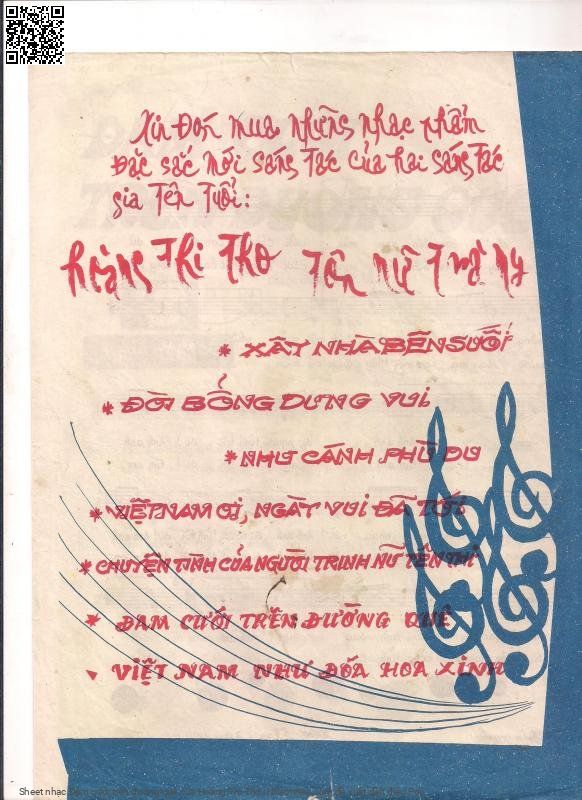 Xin Đón mua những nhạc phẩm
Đặc sắc mới sáng tác của hai sáng tác
gia tên tuổi:
hoàng thi thơ tôn nữ trà my
* XÂY NHÀ BÊN SUỐI
* ĐỜI BỖNG DƯNG VUI
* NHƯ CÁNH PHÙ DU
* VIỆT NAM ƠI, NGÀY VUI ĐÃ TỚI
* CHUYỆN TÌNH CỦA NGƯỜI TRINH NỮ TÊN THI
* ĐÁM CƯỚI TRÊN ĐƯỜNG QUÊ
* VIỆT NAM NHƯ ĐÓA HOA XINH
Sheet nhạc Đám cưới trên đường quê